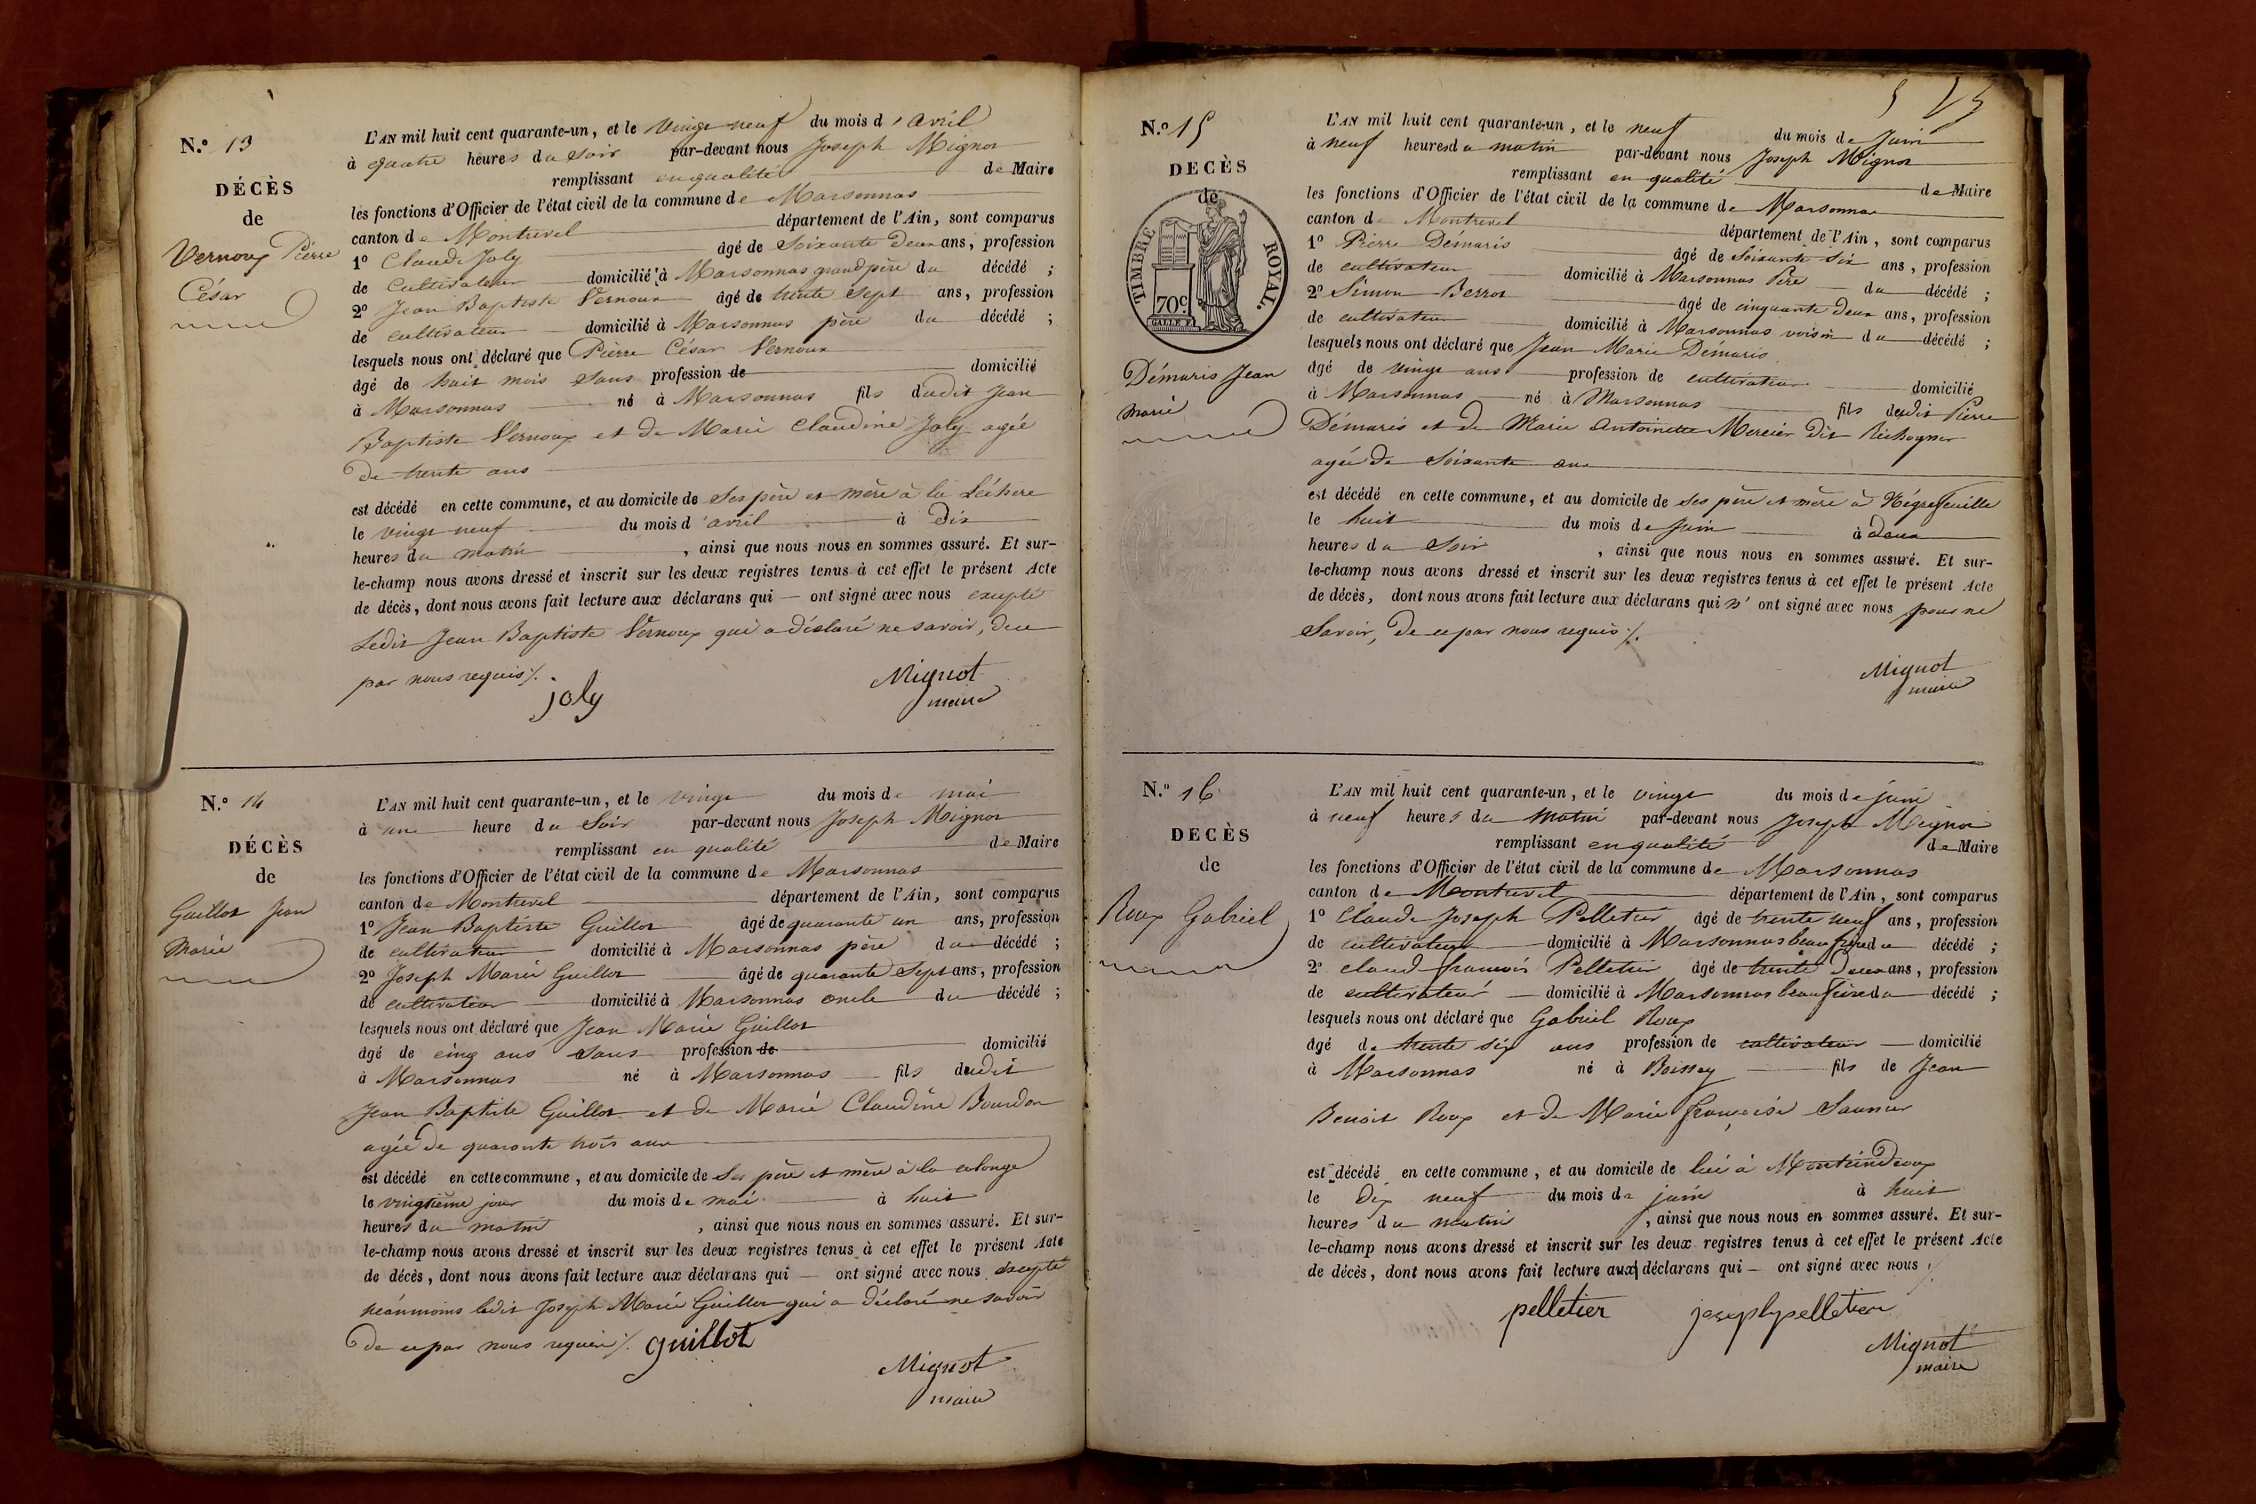 N.° 13
DÉCÈS
de
Vernoux Pierre
César
L'AN mil huit cent quarante-un, et le vingt neuf du mois d'avril
à quatre heures du soir par-devant nous Joseph Mignot
remplissant en qualité de Maire
les fonctions d'Officier de l'état civil de la commune de Marsonnas
canton de Montrevel département de l'Ain, sont comparus
1° Claude Joly âgé de soixante deux ans, profession
de cultivateur domicilié à Marsonnas grand père du décédé ;
2° Jean Baptiste Vernoux âgé de trente sept ans, profession
de cultivateur domicilié à Marsonnas père du décédé ;
lesquels nous ont déclaré que Pierre César Vernoux
âgé de huit mois sans profession de domicilié
à Marsonnas né à Marsonnas fils dudit Jean
Baptiste Vernoux et de Marie Claudine Joly agée
de trente ans
est décédé en cette commune, et au domicile de ses père et mère à la Léchere
le vingt neuf du mois d'avril à dix
heures du matin , ainsi que nous nous en sommes assuré. Et sur-
le-champ nous avons dressé et inscrit sur les deux registres tenus à cet effet le présent Acte
de décès, dont nous avons fait lecture aux déclarans qui — ont signé avec nous excepté
Ledit Jean Baptiste Vernoux qui a déclaré ne savoir, de ce
par nous requis %.
joly
Mignot
maire
N.° 14
DÉCÈS
de
Guillot Jean
Marie
L'AN mil huit cent quarante-un, et le vingt du mois de mai
à une heure du soir par-devant nous Joseph Mignot
remplissant en qualité de Maire
les fonctions d'Officier de l'état civil de la commune de Marsonnas
canton de Montrevel département de l'Ain, sont comparus
1° Jean Baptiste Guillot âgé de quarante un ans, profession
de cultivateur domicilié à Marsonnas père du décédé ;
2° Joseph Marie Guillot âgé de quarante sept ans, profession
de cultivateur domicilié à Marsonnas oncle du décédé ;
lesquels nous ont déclaré que Jean Marie Guillot
âgé de cinq ans sans profession de domicilié
à Marsonnas né à Marsonnas fils dudit
Jean Baptiste Guillot et de Marie Claudine Bourdon
agée de quarante trois ans
est décédé en cette commune, et au domicile de ses père et mère à la colonge
le vingtième jour du mois de mai à huit
heures du matin , ainsi que nous nous en sommes assuré. Et sur-
le-champ nous avons dressé et inscrit sur les deux registres tenus à cet effet le présent Acte
de décès, dont nous avons fait lecture aux déclarans qui — ont signé avec nous excepté
néanmoins ledit Joseph Marie Guillot qui a déclaré ne savoir
de ce par nous requis %. guillot
Mignot
maire
N.° 15
DECÈS
de
TIMBRE ROYAL.
70c
Démaris Jean
marie
L'AN mil huit cent quarante-un, et le neuf du mois de juin
à neuf heures du matin par-devant nous Joseph Mignot
remplissant en qualité de Maire
les fonctions d'Officier de l'état civil de la commune de Marsonnas
canton de Montrevel département de l'Ain, sont comparus
1° Pierre Démaris âgé de soixante six ans, profession
de cultivateur domicilié à Marsonnas Père du décédé ;
2° Simon Berrot âgé de cinquante deux ans, profession
de cultivateur domicilié à Marsonnas voisin du décédé ;
lesquels nous ont déclaré que Jean Marie Démaris
âgé de vingt ans profession de cultivateur domicilié
à Marsonnas né à Marsonnas fils dudit Pierre
Démaris et de Marie Antoinette Mercier dit
agée de soixante ans
est décédé en cette commune, et au domicile de ses père et mère à Négrefeuille
le huit du mois de juin à deux
heures du soir , ainsi que nous nous en sommes assuré. Et sur-
le-champ nous avons dressé et inscrit sur les deux registres tenus à cet effet le présent Acte
de décès, dont nous avons fait lecture aux déclarans qui n'ont signé avec nous pour ne
savoir, de ce par nous requis %.
Mignot
maire
N.° 16
DECÈS
de
Roux Gabriel
L'AN mil huit cent quarante-un, et le vingt du mois de juin
à neuf heures du matin par-devant nous Joseph Mignot
remplissant en qualité de Maire
les fonctions d'Officier de l'état civil de la commune de Marsonnas
canton de Montrevel département de l'Ain, sont comparus
1° Claude Joseph Pelletier âgé de trente neuf ans, profession
de cultivateur domicilié à Marsonnas beau frère du décédé ;
2° claude françois Pelletier âgé de trente deux ans, profession
de cultivateur domicilié à Marsonnas beau frère du décédé ;
lesquels nous ont déclaré que Gabriel Roux
âgé de trente six ans profession de cultivateur domicilié
à Marsonnas né à Boissey fils de Jean
Benoit Roux et de Marie françoise Saunier
est décédé en cette commune, et au domicile de lui à
le dix neuf du mois de juin à huit
heures du matin , ainsi que nous nous en sommes assuré. Et sur-
le-champ nous avons dressé et inscrit sur les deux registres tenus à cet effet le présent Acte
de décès, dont nous avons fait lecture aux déclarans qui — ont signé avec nous %.
pelletier joseph pelletier
Mignot
maire